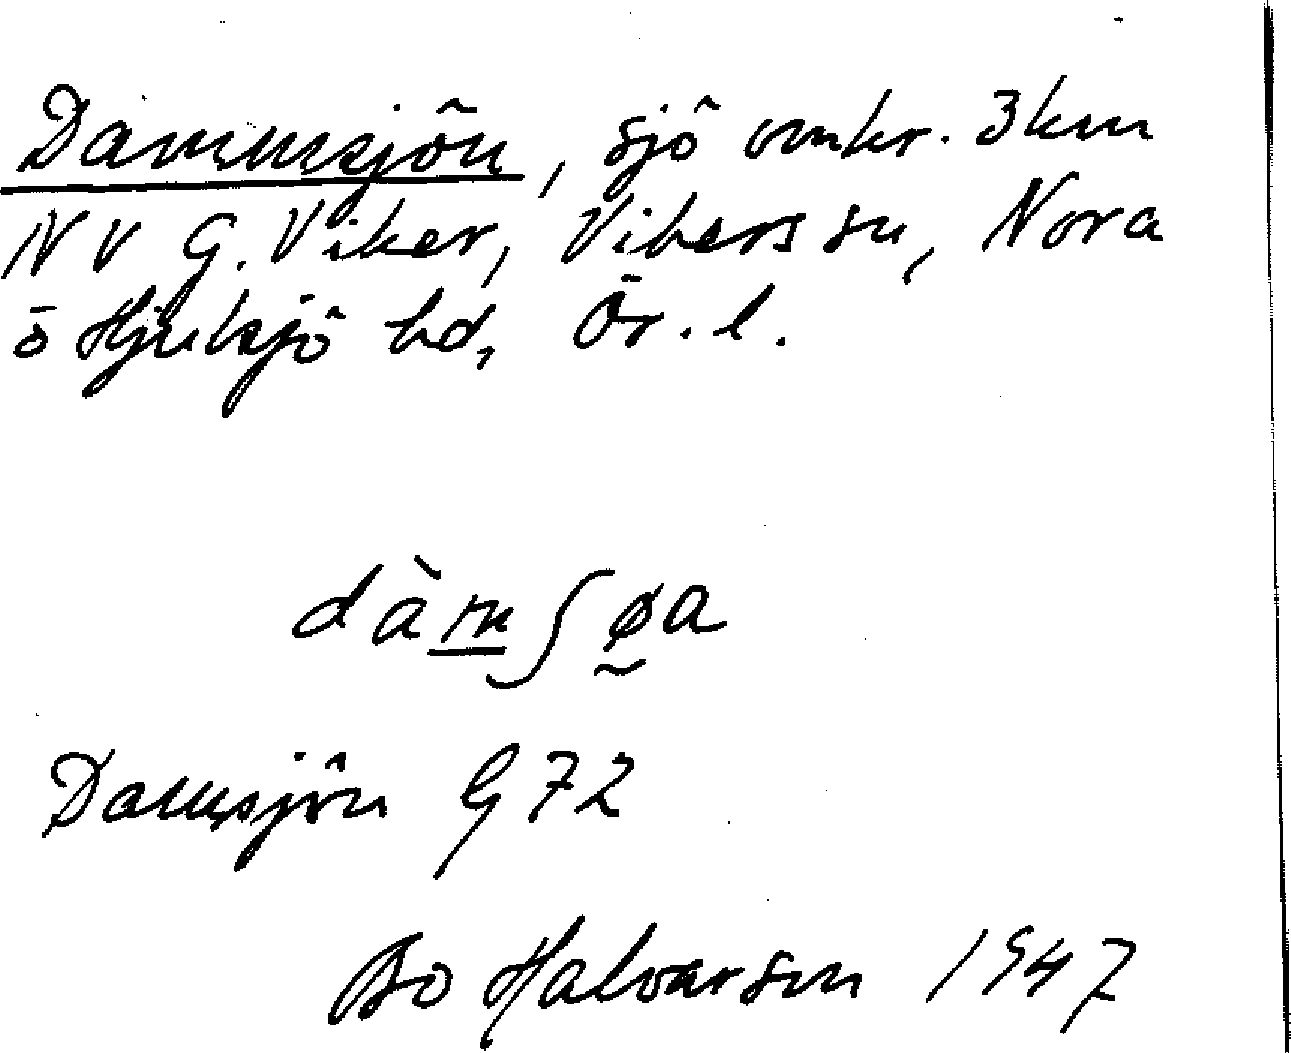 Dammsjön, sjö omkr. 3 km
NV G. Viker, Vikers sn, Nora
o Hjulsjö hd, Ör. l.
dàm̲ʃø̰a
Damsjön G 72
Bo Halvarson 1947